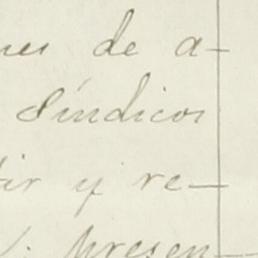 nes de a-
Síndicos
tir y re-
presen-